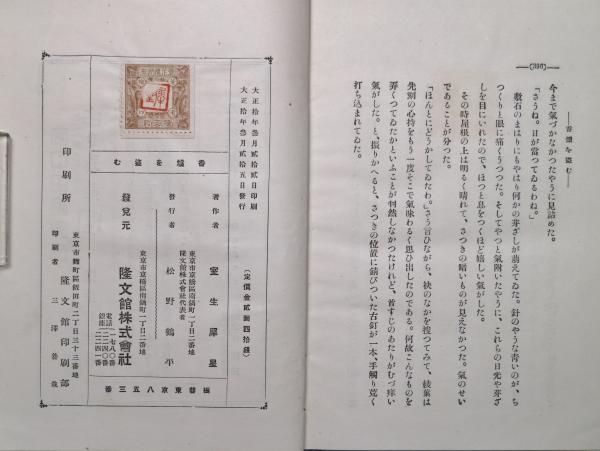 (396)
――香爐を盗む――
今まで氣づかなかつたやうに見詰めた。
「さうね。日が當つてゐるわね。」
敷石のまはりにもやはり何かの芽ざしが萠えてゐた。針のやうな青いのが、ち
つくりと眼に痛くうつつた。そしてやつと氣附いたやうに、これらの日光や芽ざ
しを目にいれたので、ほつと息をつくほど嬉しい氣がした。
その時屋根の上は明るく晴れて、さつきの暗いものが見えなかつた。氣のせい
であることが分つた。
「ほんとにどうかしてゐたわ。」さう言ひながら、袂のなかを捜つてみて、綾葉は
先刻の心持をもう一度そこで氣味わるく思ひ出したのである。何故こんなものを
弄くつてゐたかといふことが判然しなかつたけれど、首すじのあたりがむづ痒い
氣がした。と、振りかへると、さつきの位置に錆びついた古釘が一本、手觸り荒く
打ち込まれてゐた。
大正拾年參月貳拾貳日印刷
大正拾年參月貳拾五日發行
(定價金貳圓四拾錢)
香爐を盗む
著作者 室生犀星
東京市京橋區南鍋町一丁目二番地
隆文館株式會社代表者
發行者 松野鶴平
東京市京橋區南鍋町一丁目二番地
發兌元 隆文館株式會社
電話 一七八〇番
銀座 二二四〇番
二二四一番
振替東京八五三番
東京市麹町區飯田町二丁目三十三番地
印刷所 隆文館印刷部
印刷者 三澤